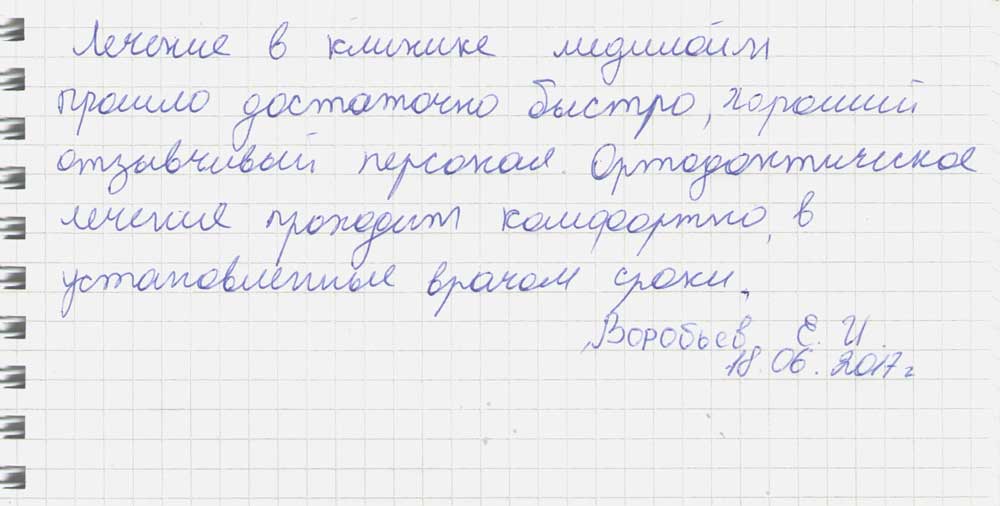 Лечение в клинике медилайн
прошло достаточно быстро, хороший
отзывчивый персонал. Ортодонтическое
лечение проходит комфортно, в
установленные врачом сроки.
Воробьев Е. И.
18.06.2017г